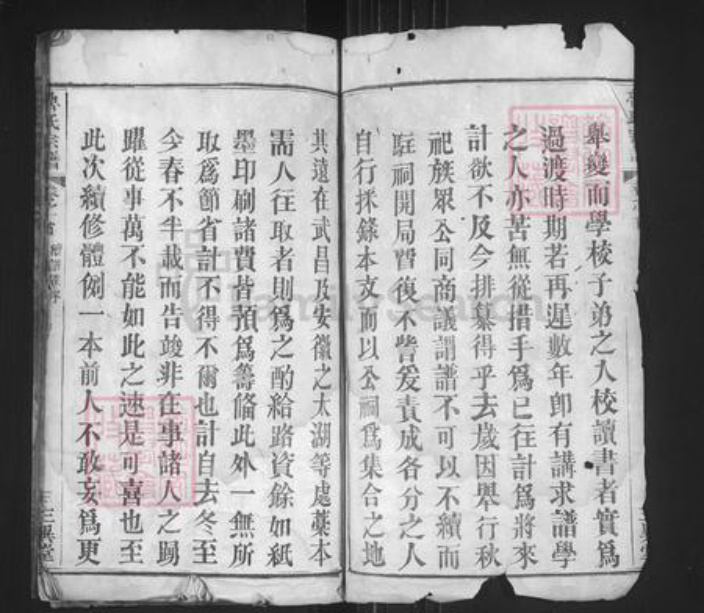 舉變而學校子弟之入校讀書者實爲
過渡時期若再遲數年卽有講求譜學
之人亦苦無從措手爲已往計爲將來
計欲不及今排纂得乎去歲因舉行秋
祀族眾公同商議謂譜不可以不續而
駐祠開局費復不訾爰責成各分之人
自行採錄本支而以公祠爲集合之地
其遠在武昌及安徽之太湖等處藁本
需人往取者則爲之酌給路資餘如紙
墨印刷諸費皆預爲籌備此外一無所
取爲節省計不得不爾也計自去冬至
今春不半載而告竣非在事諸人之踴
躍從事萬不能如此之速是可喜也至
此次續修體例一本前人不敢妄爲更
三異堂
FamilySearch